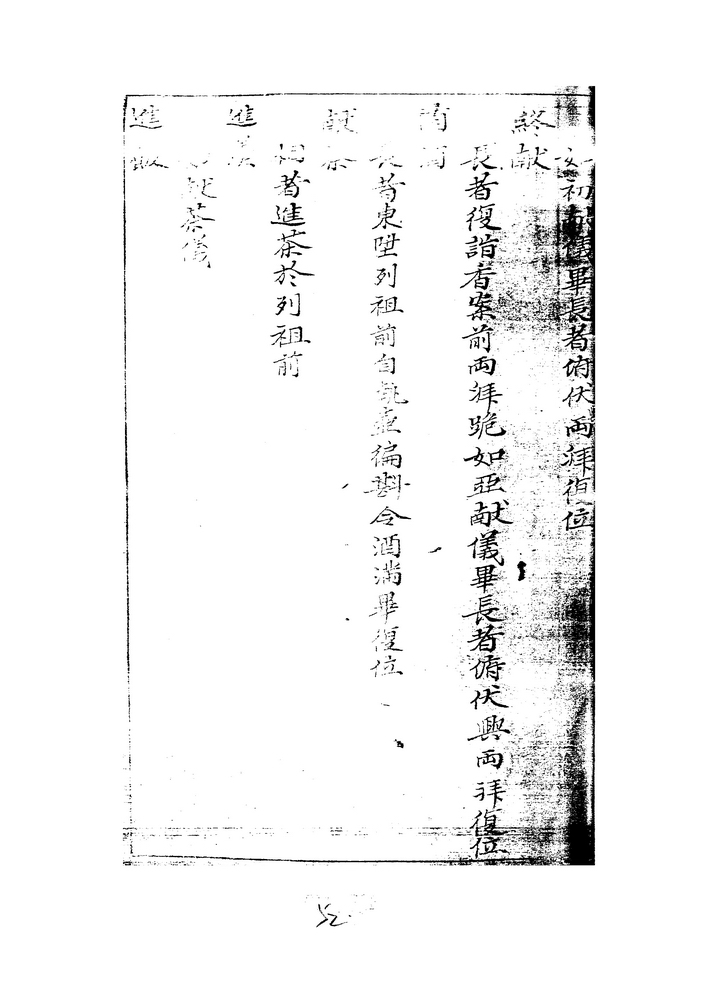 如初献儀畢長者俯伏兩拜復位
終献
長者復詣香案前兩拜跪如亞献儀畢長者俯伏興兩拜復位
侑酒
長者東陞列祖前自執壺徧斟令酒滿畢復位
献茶
相者進茶於列祖前
進羹
如献茶儀
進飯
52